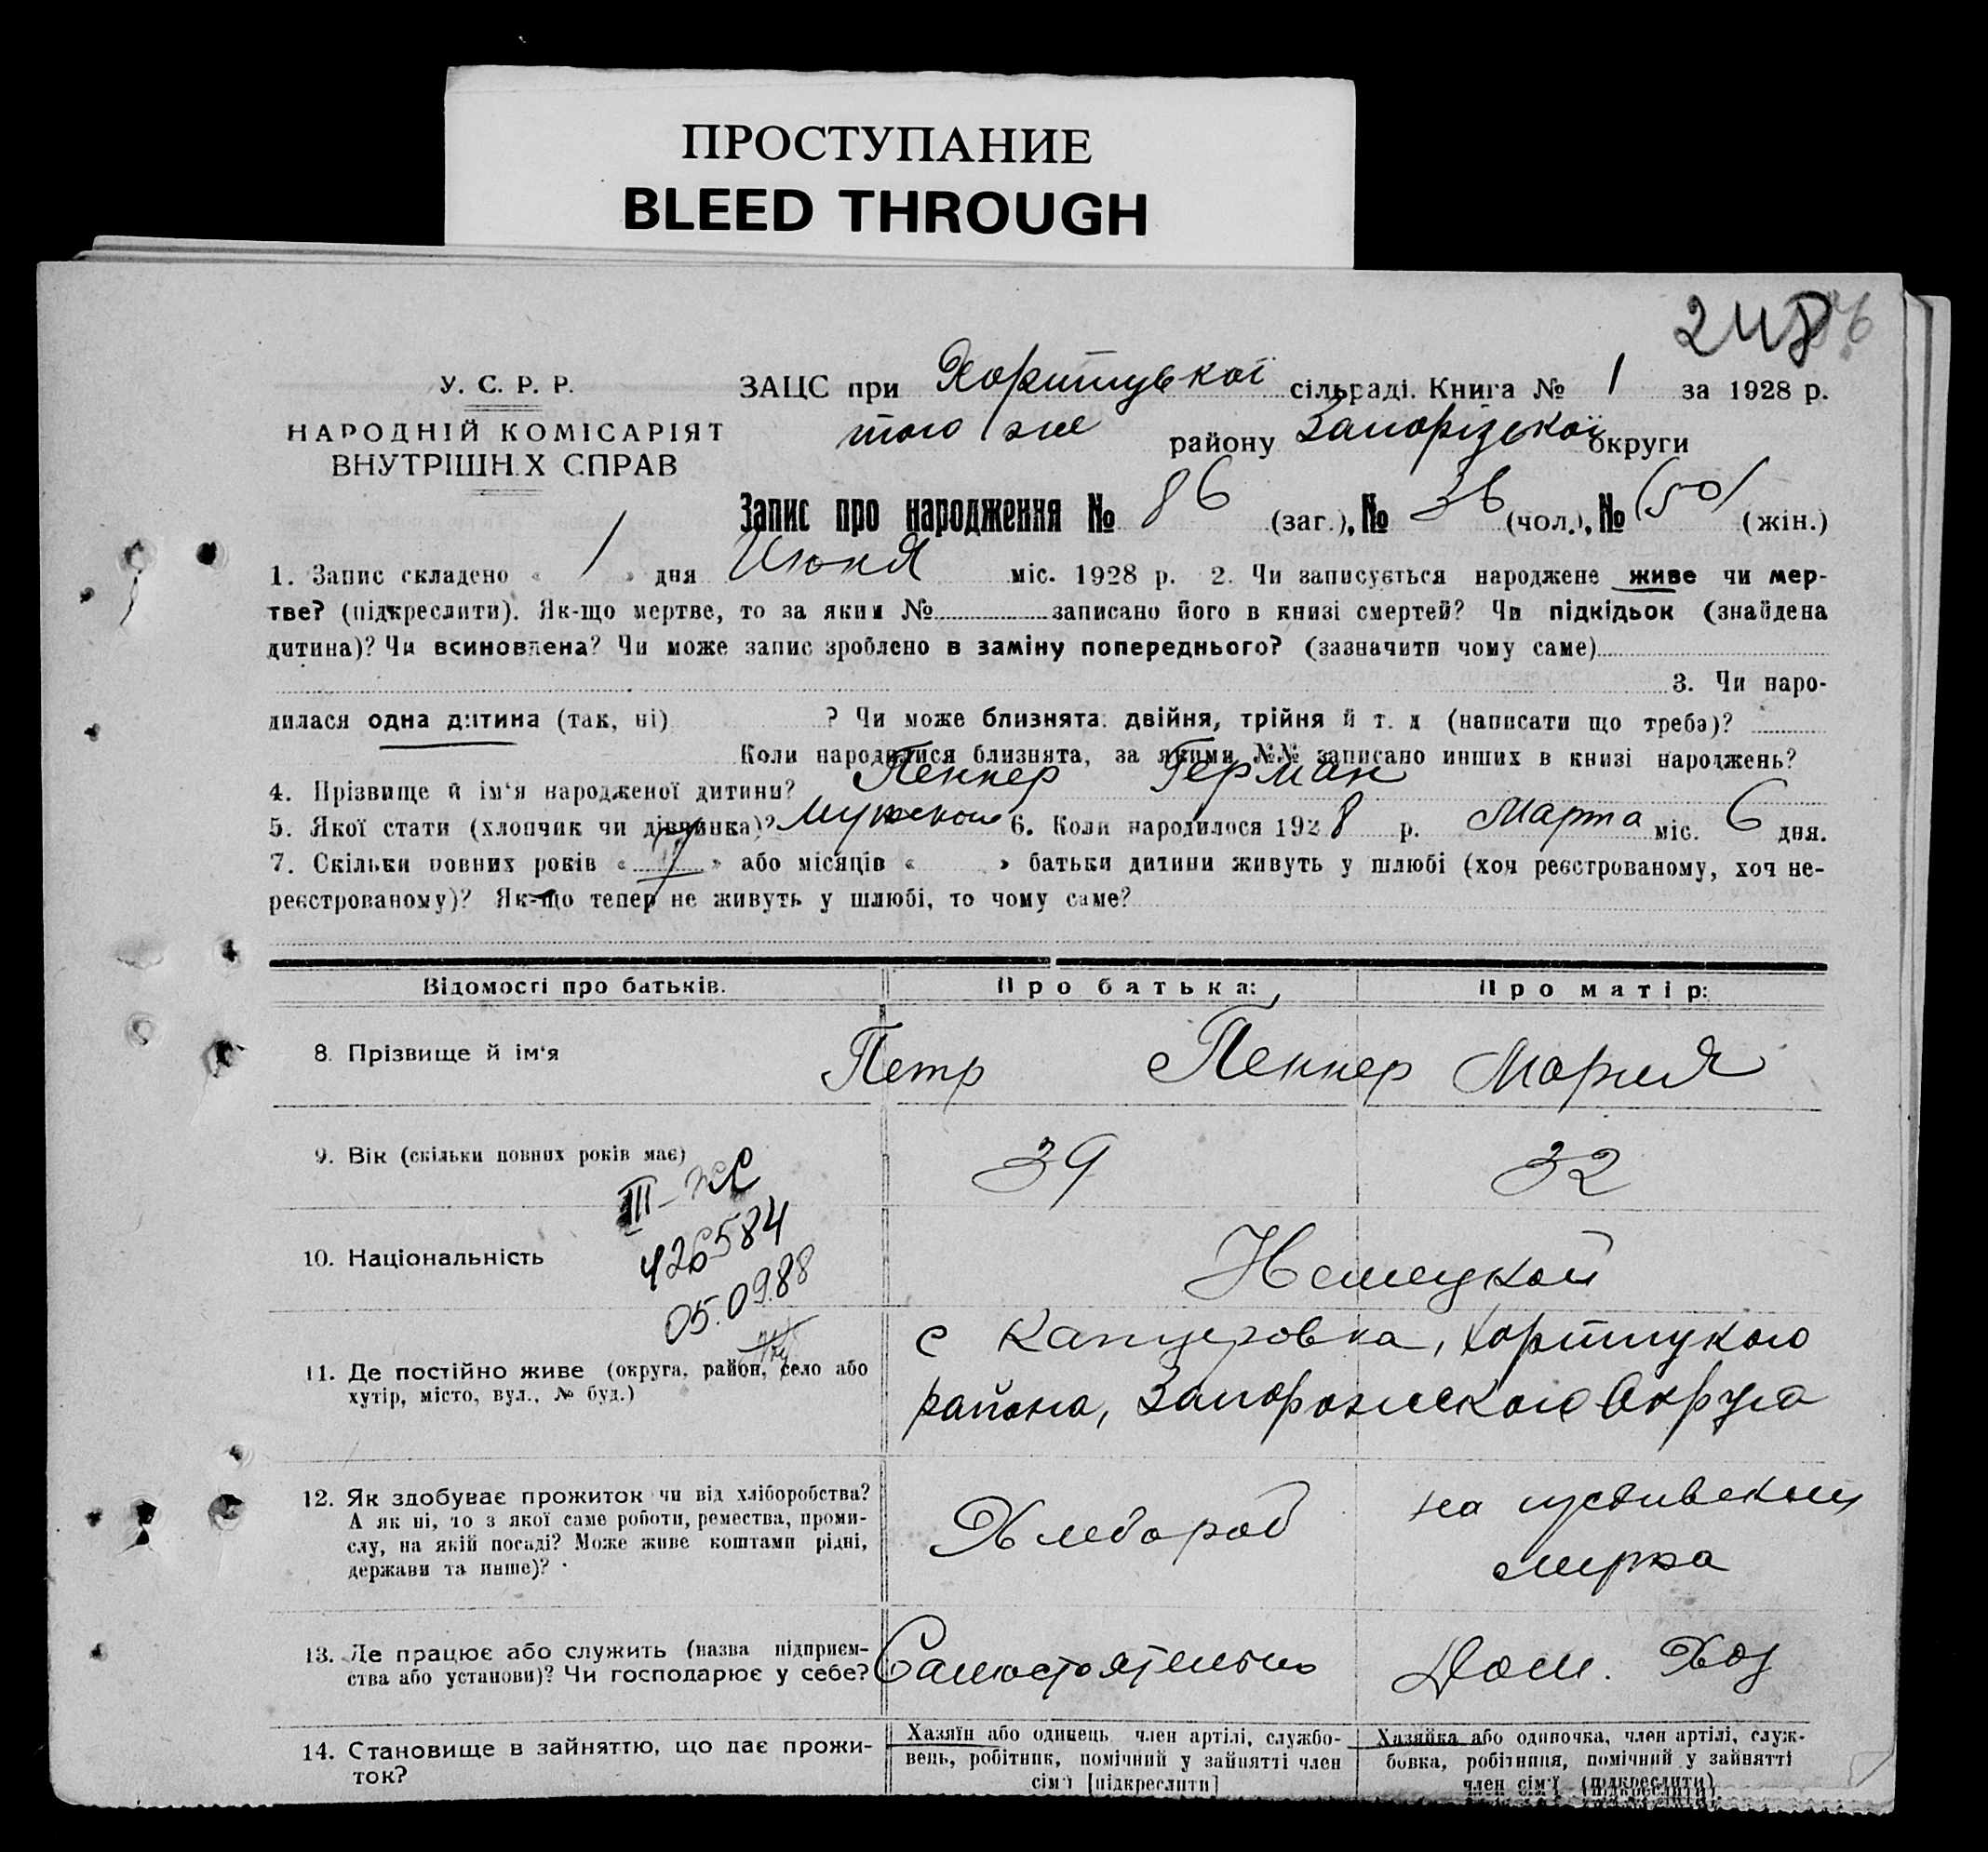 ПРОСТУПАНИЕ
BLEED THROUGH
248
У. С. Р. Р.
НАРОДНІЙ КОМІСАРІЯТ
ВНУТРІШН.Х СПРАВ
ЗАЦС при Хортицької сільраді. Книга № 1 за 1928 р.
того же району Запорізької округи
Запис про народження № 86 (заг.), № 36 (чол.), № (50) (жін.)
1. Запис складено « 1 » дня Июня міс. 1928 р. 2. Чи записується народжене живе чи мер-
тве? (підкреслити). Як-що мертве, то за яким № записано його в книзі смертей? Чи підкідьок (знайдена
дитина)? Чи всиновлена? Чи може запис зроблено в заміну попереднього? (зазначити чому саме)
3. Чи наро-
дилася одна дитина (так, ні) ? Чи може близнята: двійня, трійня й т. д (написати що треба)?
Коли народилися близнята, за якими №№ записано инших в книзі народжень?
4. Прізвище й ім'я народженої дитини? Пеннер Герман
5. Якої стати (хлопчик чи дівчинка)? Мужской 6. Коли народилося 1928 р. Марта міс. 6 дня.
7. Скільки повних років « 7 » або місяців « » батьки дитини живуть у шлюбі (хоч реєстрованому, хоч не-
реєстрованому)? Як-що тепер не живуть у шлюбі, то чому саме?
Відомості про батьків. Про батька: Про матір:
8. Прізвище й ім'я Петр Пеннер Мария
9. Вік (скільки повних років має) 39 32
III-
426584
05.09.88
10. Національність Немецкой
11. Де постійно живе (округа, район, село або
хутір, місто, вул., № буд.)
с Канцеровка, Хортицкого
района, Запорожского Округа
12. Як здобуває прожиток чи від хліборобства?
А як ні, то з якої саме роботи, ремества, проми-
слу, на якій посаді? Може живе коштами рідні,
держави та инше)?
Хлебороб
на иждивении
мужа
13. Де працює або служить (назва підприєм-
ства або установи)? Чи господарює у себе?
Самостоятельно Дом. Хоз
14. Становище в зайняттю, що дає прожи-
ток?
Хазяїн або одинець член артілі, службо-
вець, робітник, помічний у зайнятті член
сім'ї [підкреслити]
Хазяйка або одиночка, член артілі, служ-
бовка, робітниця, помічний у зайнятті
член сім'ї (підкреслити)